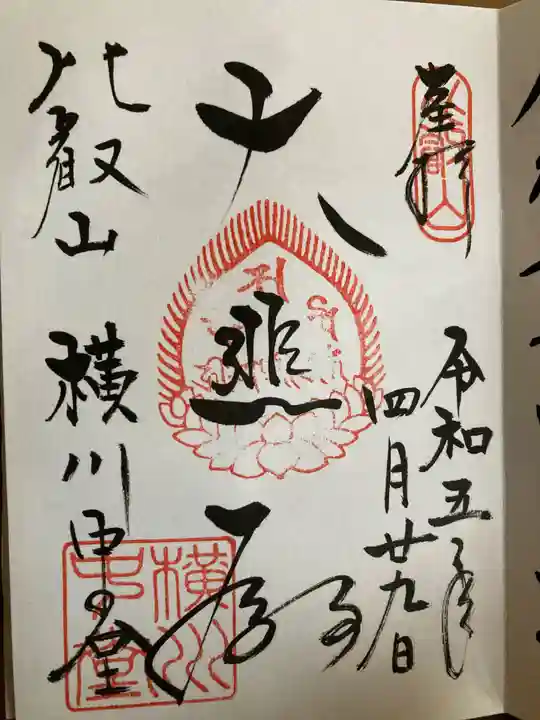 奉拝
比叡山
令和五年
四月廿九日
大悲殿
比叡山 横川中堂
横川
中堂